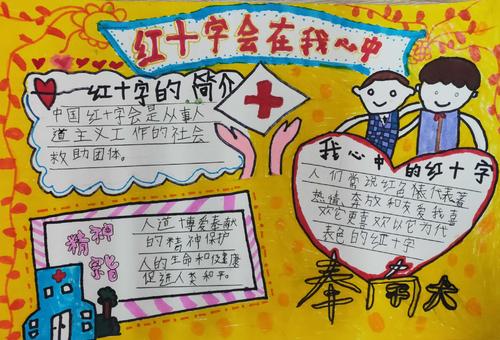 红十字会在我心中
红十字的 简介
中国红十字会是从事人
道主义工作的社会
救助团体。
我心中的红十字
人们常说红色代表着
热情、奔放和友爱我喜
欢它更喜欢以它为代
表色的红十字
精神
人道 博爱奉献
的精神保护
人的生命和健康
促进人类和平。